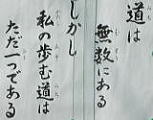 道は
無数にある
しかし
私の歩む道は
ただ一つである